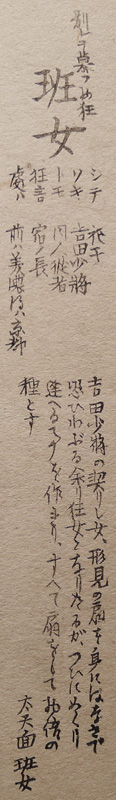 班女
シテ 花子
ソキ 吉田少將
トモ 同ノ從者
狂言 宿ノ長
處ハ 前ハ美濃後ハ京都
吉田少將の契りし女、形見の扇を身にはなさで
思ひわぶる余り狂女となりたるが、つひにめぐり
逢へる事を作れり、すべて扇をもて物語の
種とす
太夫面 班女